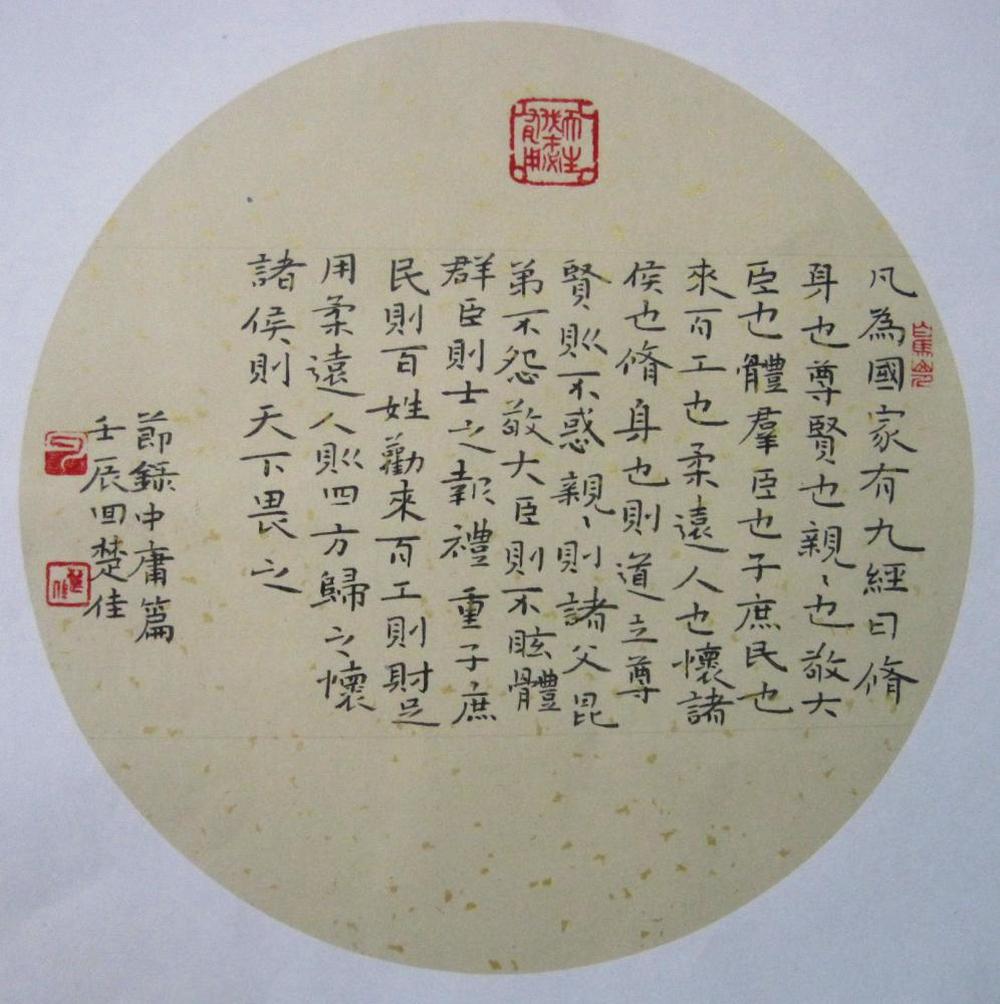 凡為國家有九經曰脩
身也尊賢也親〻也敬大
臣也體羣臣也子庶民也
來百工也柔遠人也懷諸
侯也脩身也則道立尊
賢則不惑親〻則諸父昆
弟不怨敬大臣則不眩體
群臣則士之報禮重子庶
民則百姓勸來百工則財足
用柔遠人則四方歸之懷
諸侯則天下畏之
節錄中庸篇
壬辰回楚佳